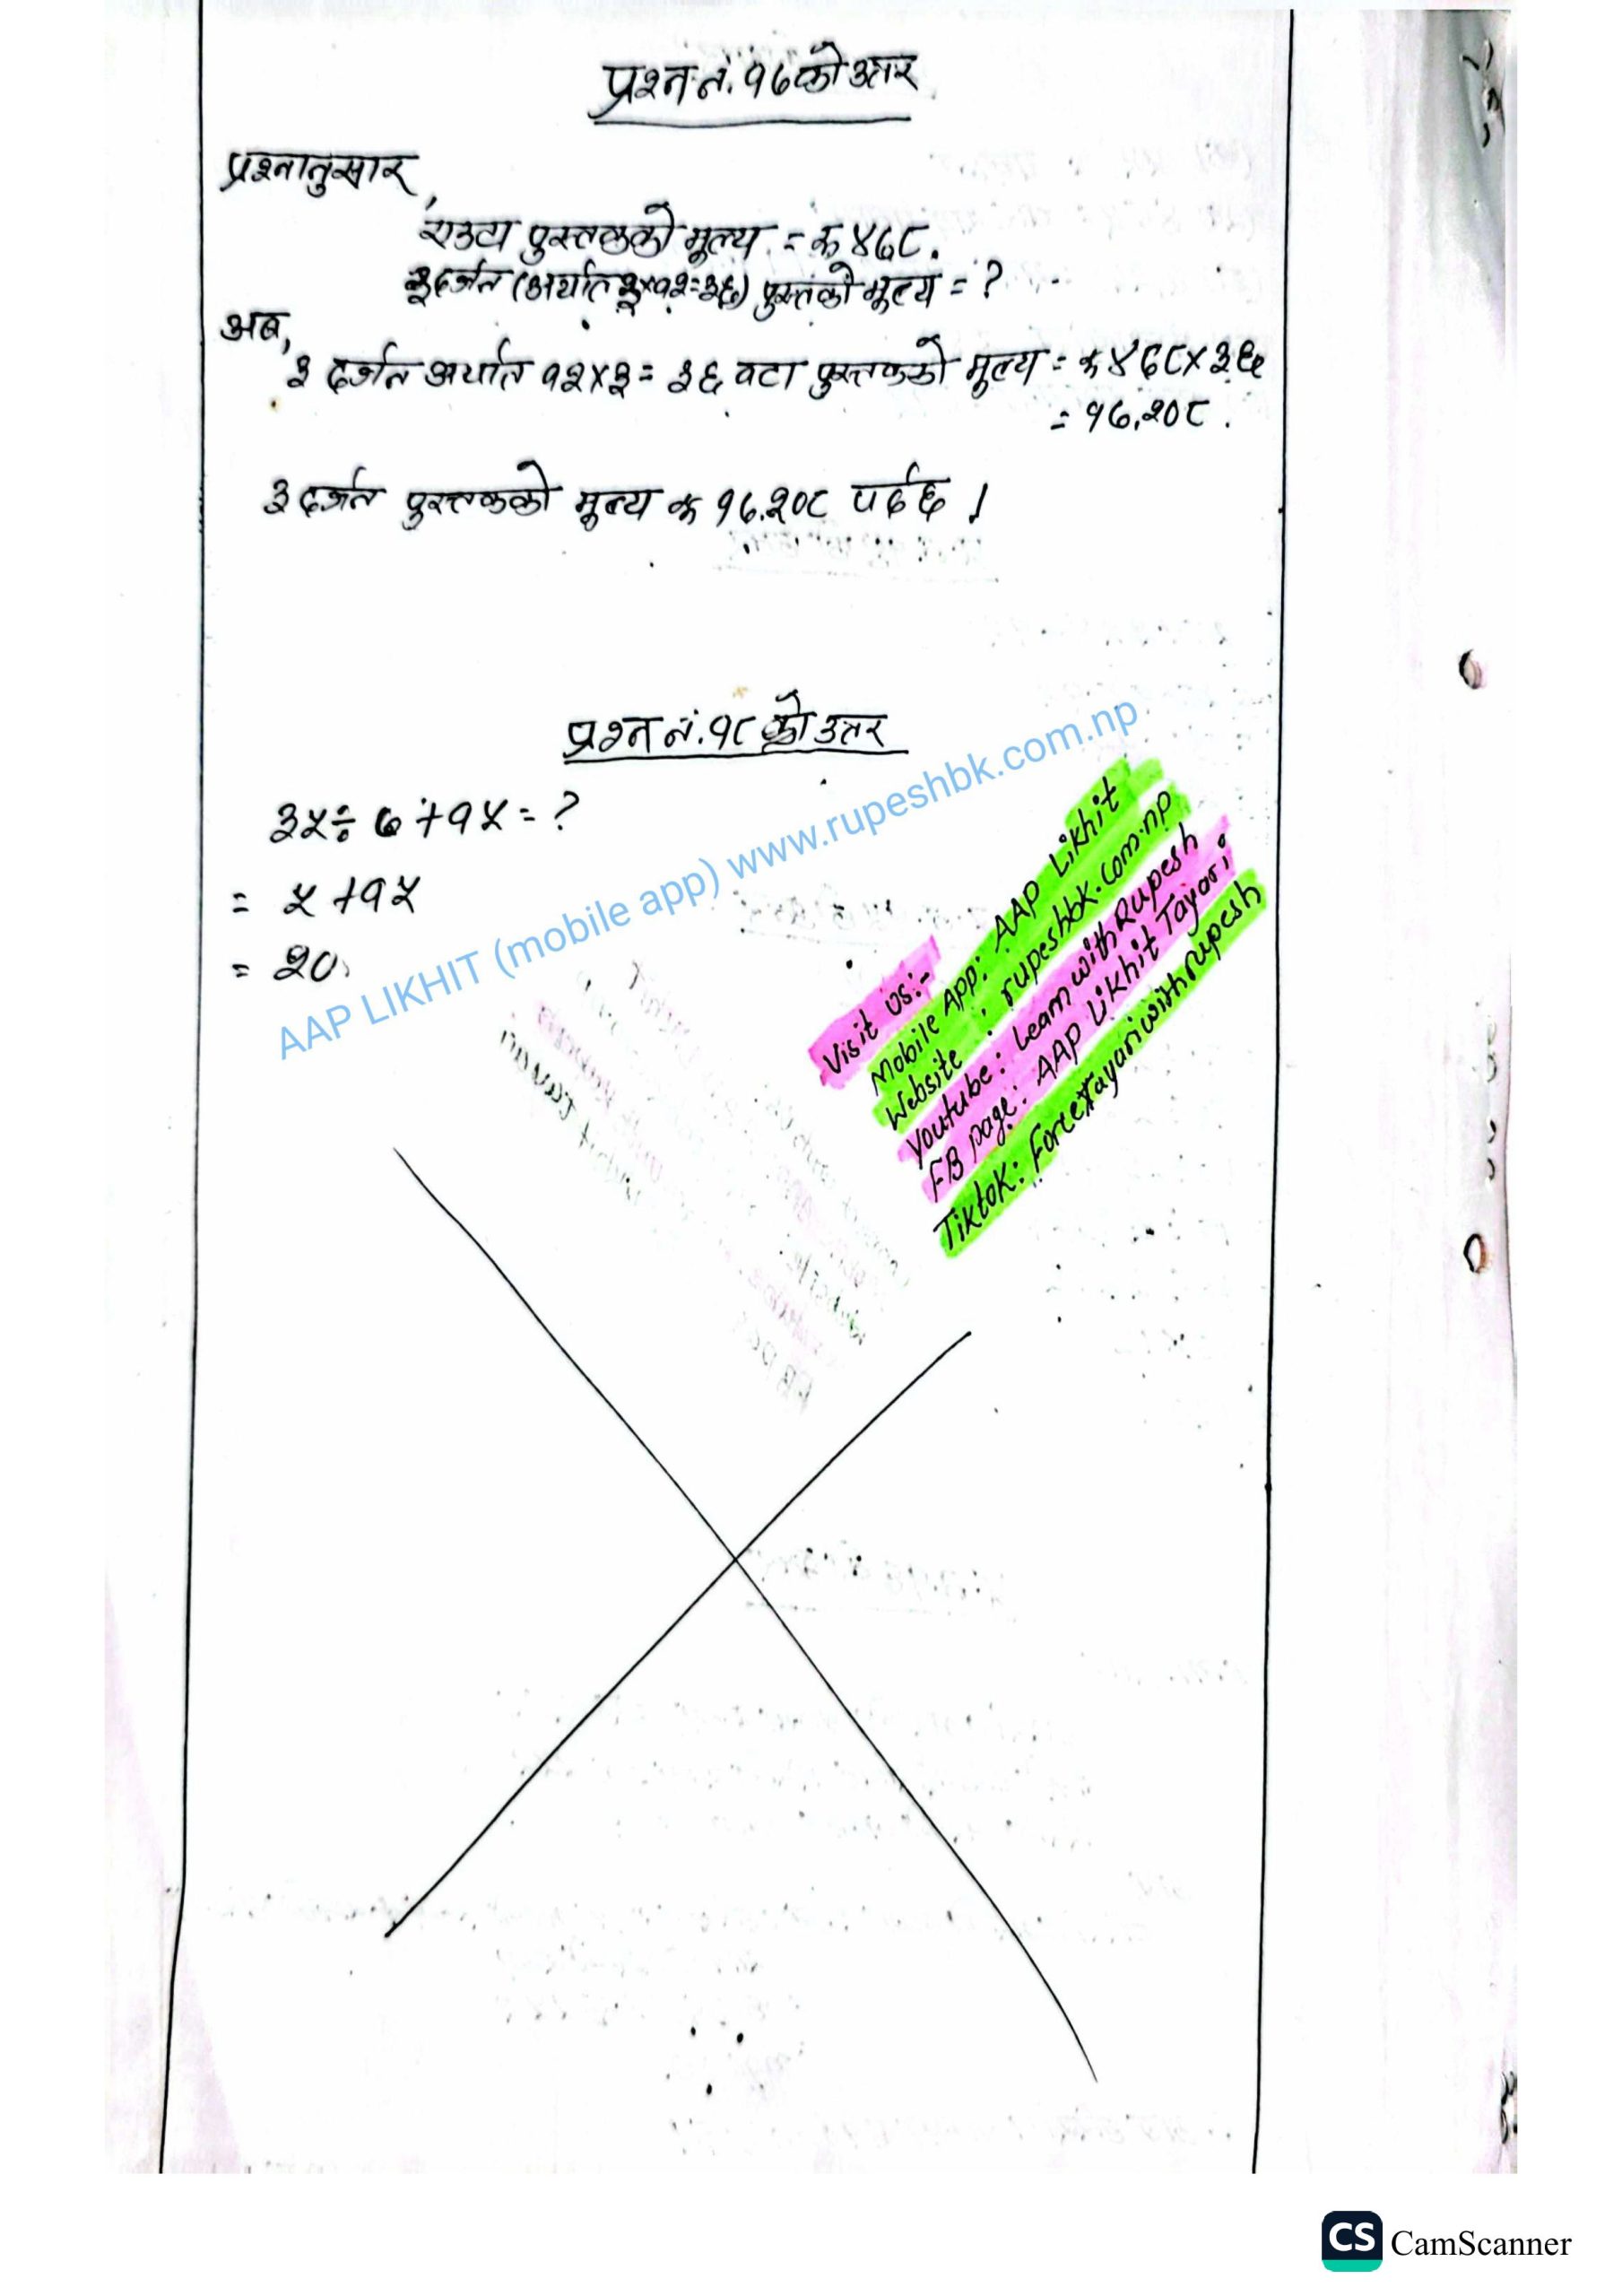 प्रश्न नं. १७ को उत्तर
प्रश्नानुसार,
एउटा पुस्तकको मूल्य = रु ४७८.
३ दर्जन (अर्थात ३×१२=३६) पुस्तको मूल्य = ?
अब,
३ दर्जन अर्थात १२×३ = ३६ वटा पुस्तकको मूल्य = रु ४७८×३६
= १७,२०८.
३ दर्जन पुस्तकको मूल्य रु १७,२०८ पर्दछ ।
प्रश्न नं. १८ को उत्तर
३५÷७+१५=?
= ५+१५
= २०
AAP LIKHIT (mobile app) www.rupeshbk.com.np
Visit Us:-
Mobile App: AAP Likhit
Website : rupeshbk.com.np
Youtube: Learn with Rupesh
FB page: AAP Likhit Tayari
Tiktok: Forcetayariwithrupesh
CS CamScanner